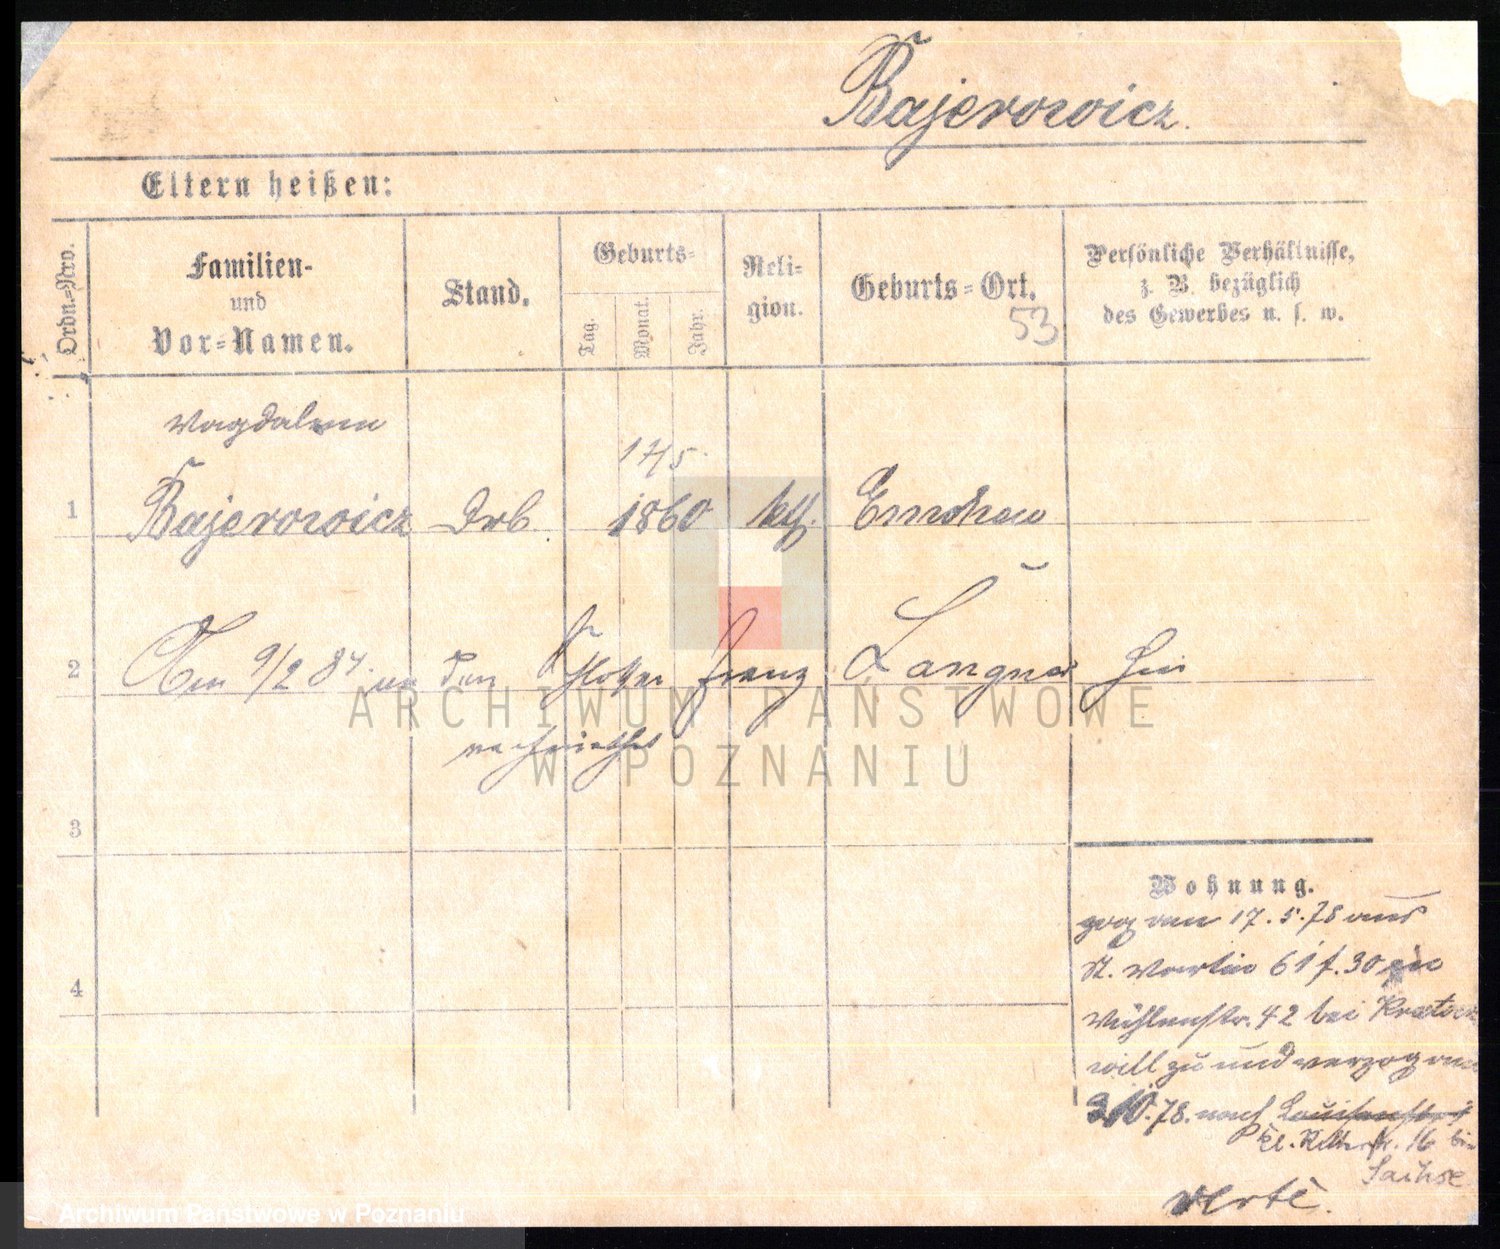 Bajerowicz.
Eltern heißen:
Ordn.=Nro.
Familien-
und
Vor=Namen.
Stand.
Geburts=
Tag.
Monat.
Jahr.
Reli-
gion.
Geburts=Ort.
53
Persönliche Verhältnisse,
z. B. bezüglich
des Gewerbes u. s. w.
Magdalena
17/5.
1 Bajerowicz 1860 kth.
2 Am 9/2 84 an den Schlosser Franz Langner hier
verheirathet
3
4
Wohnung.
zog am 17.5.78 aus
St. Martin 61 f. 30 in
Mühlenstr. 42 bei
will zu und verzog am
.78. nach Louisenstr.
kl. Ritterstr. 16 bei
Sachse
Verte.
ARCHIWUM PAŃSTWOWE
W POZNANIU
Archiwum Państwowe w Poznaniu